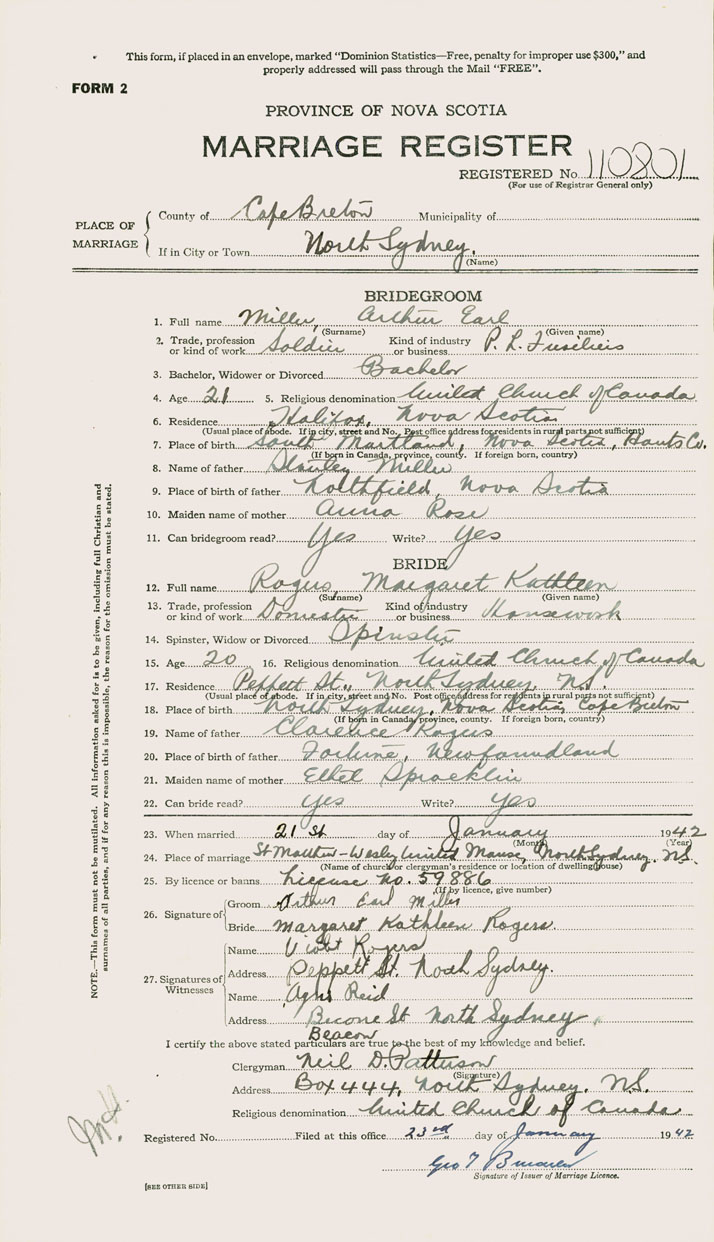 This form, if placed in an envelope, marked "Dominion Statistics—Free, penalty for improper use $300," and
properly addressed will pass through the Mail "FREE".
FORM 2
PROVINCE OF NOVA SCOTIA
MARRIAGE REGISTER
REGISTERED No. 110801
(For use of Registrar General only)
PLACE OF MARRIAGE
County of Cape Breton Municipality of
If in City or Town North Sydney.
(Name)
BRIDEGROOM
1. Full name Miller, Arthur Earl
(Surname) (Given name)
2. Trade, profession or kind of work Soldier Kind of industry or business P. L. Fusiliers
3. Bachelor, Widower or Divorced Bachelor
4. Age 21 5. Religious denomination United Church of Canada
6. Residence Halifax, Nova Scotia
(Usual place of abode. If in city, street and No. Post office address for residents in rural parts not sufficient)
7. Place of birth South Maitland, Nova Scotia, Hants Co.
(If born in Canada, province, county. If foreign born, country)
8. Name of father Stanley Miller
9. Place of birth of father Northfield, Nova Scotia
10. Maiden name of mother Anna Rose
11. Can bridegroom read? Yes Write? Yes
BRIDE
12. Full name Rogers, Margaret Kathleen
(Surname) (Given name)
13. Trade, profession or kind of work Domestic Kind of industry or business Housework
14. Spinster, Widow or Divorced Spinster
15. Age 20 16. Religious denomination United Church of Canada
17. Residence Peppett St., North Sydney, N.S.
(Usual place of abode. If in city, street and No. Post office address for residents in rural parts not sufficient)
18. Place of birth North Sydney, Nova Scotia, Cape Breton
(If born in Canada, province, county. If foreign born, country)
19. Name of father Clarence Rogers
20. Place of birth of father Fortune, Newfoundland
21. Maiden name of mother Ethel Spracklin
22. Can bride read? Yes Write? Yes
23. When married 21 st day of January 1942
(Month) (Year)
24. Place of marriage St Matthew-Wesley United Manse, North Sydney. N.S.
(Name of church or clergyman's residence or location of dwelling house)
25. By licence or banns License no. 59886
(If by licence, give number)
26. Signature of
Groom Arthur Earl Miller
Bride Margaret Kathleen Rogers.
27. Signatures of Witnesses
Name Violet Rogers
Address Peppett St. North Sydney.
Name Agnes Reid
Address Bicone St North Sydney
Beacon
I certify the above stated particulars are true to the best of my knowledge and belief.
Clergyman Neil D. Patterson
(Signature)
Address Box 444, North Sydney. N.S.
Religious denomination United Church of Canada
Registered No. Filed at this office 23rd day of January 1942
Geo T
Signature of Issuer of Marriage Licence.
[SEE OTHER SIDE]
NOTE.—This form must not be mutilated. All information asked for is to be given, including full Christian and
surnames of all parties, and if for any reason this is impossible, the reason for the omission must be stated.